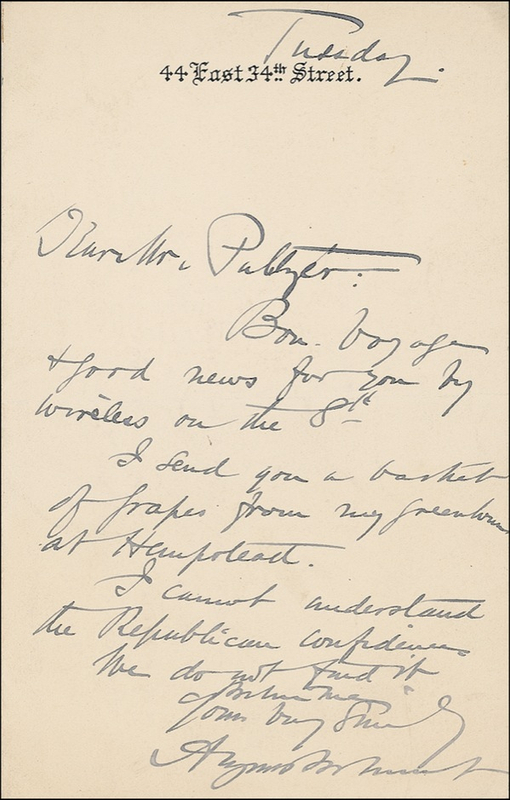 Tuesday.
44 East 34th Street.
Dear Mr. Pulitzer:
Bon-Voyage
& good news for you by
wireless on the 8th
I send you a basket
of grapes from my greenhouse
at Hempstead.
I cannot understand
the Republican confidence
We do not find it
Believe me
yours very
August Belmont